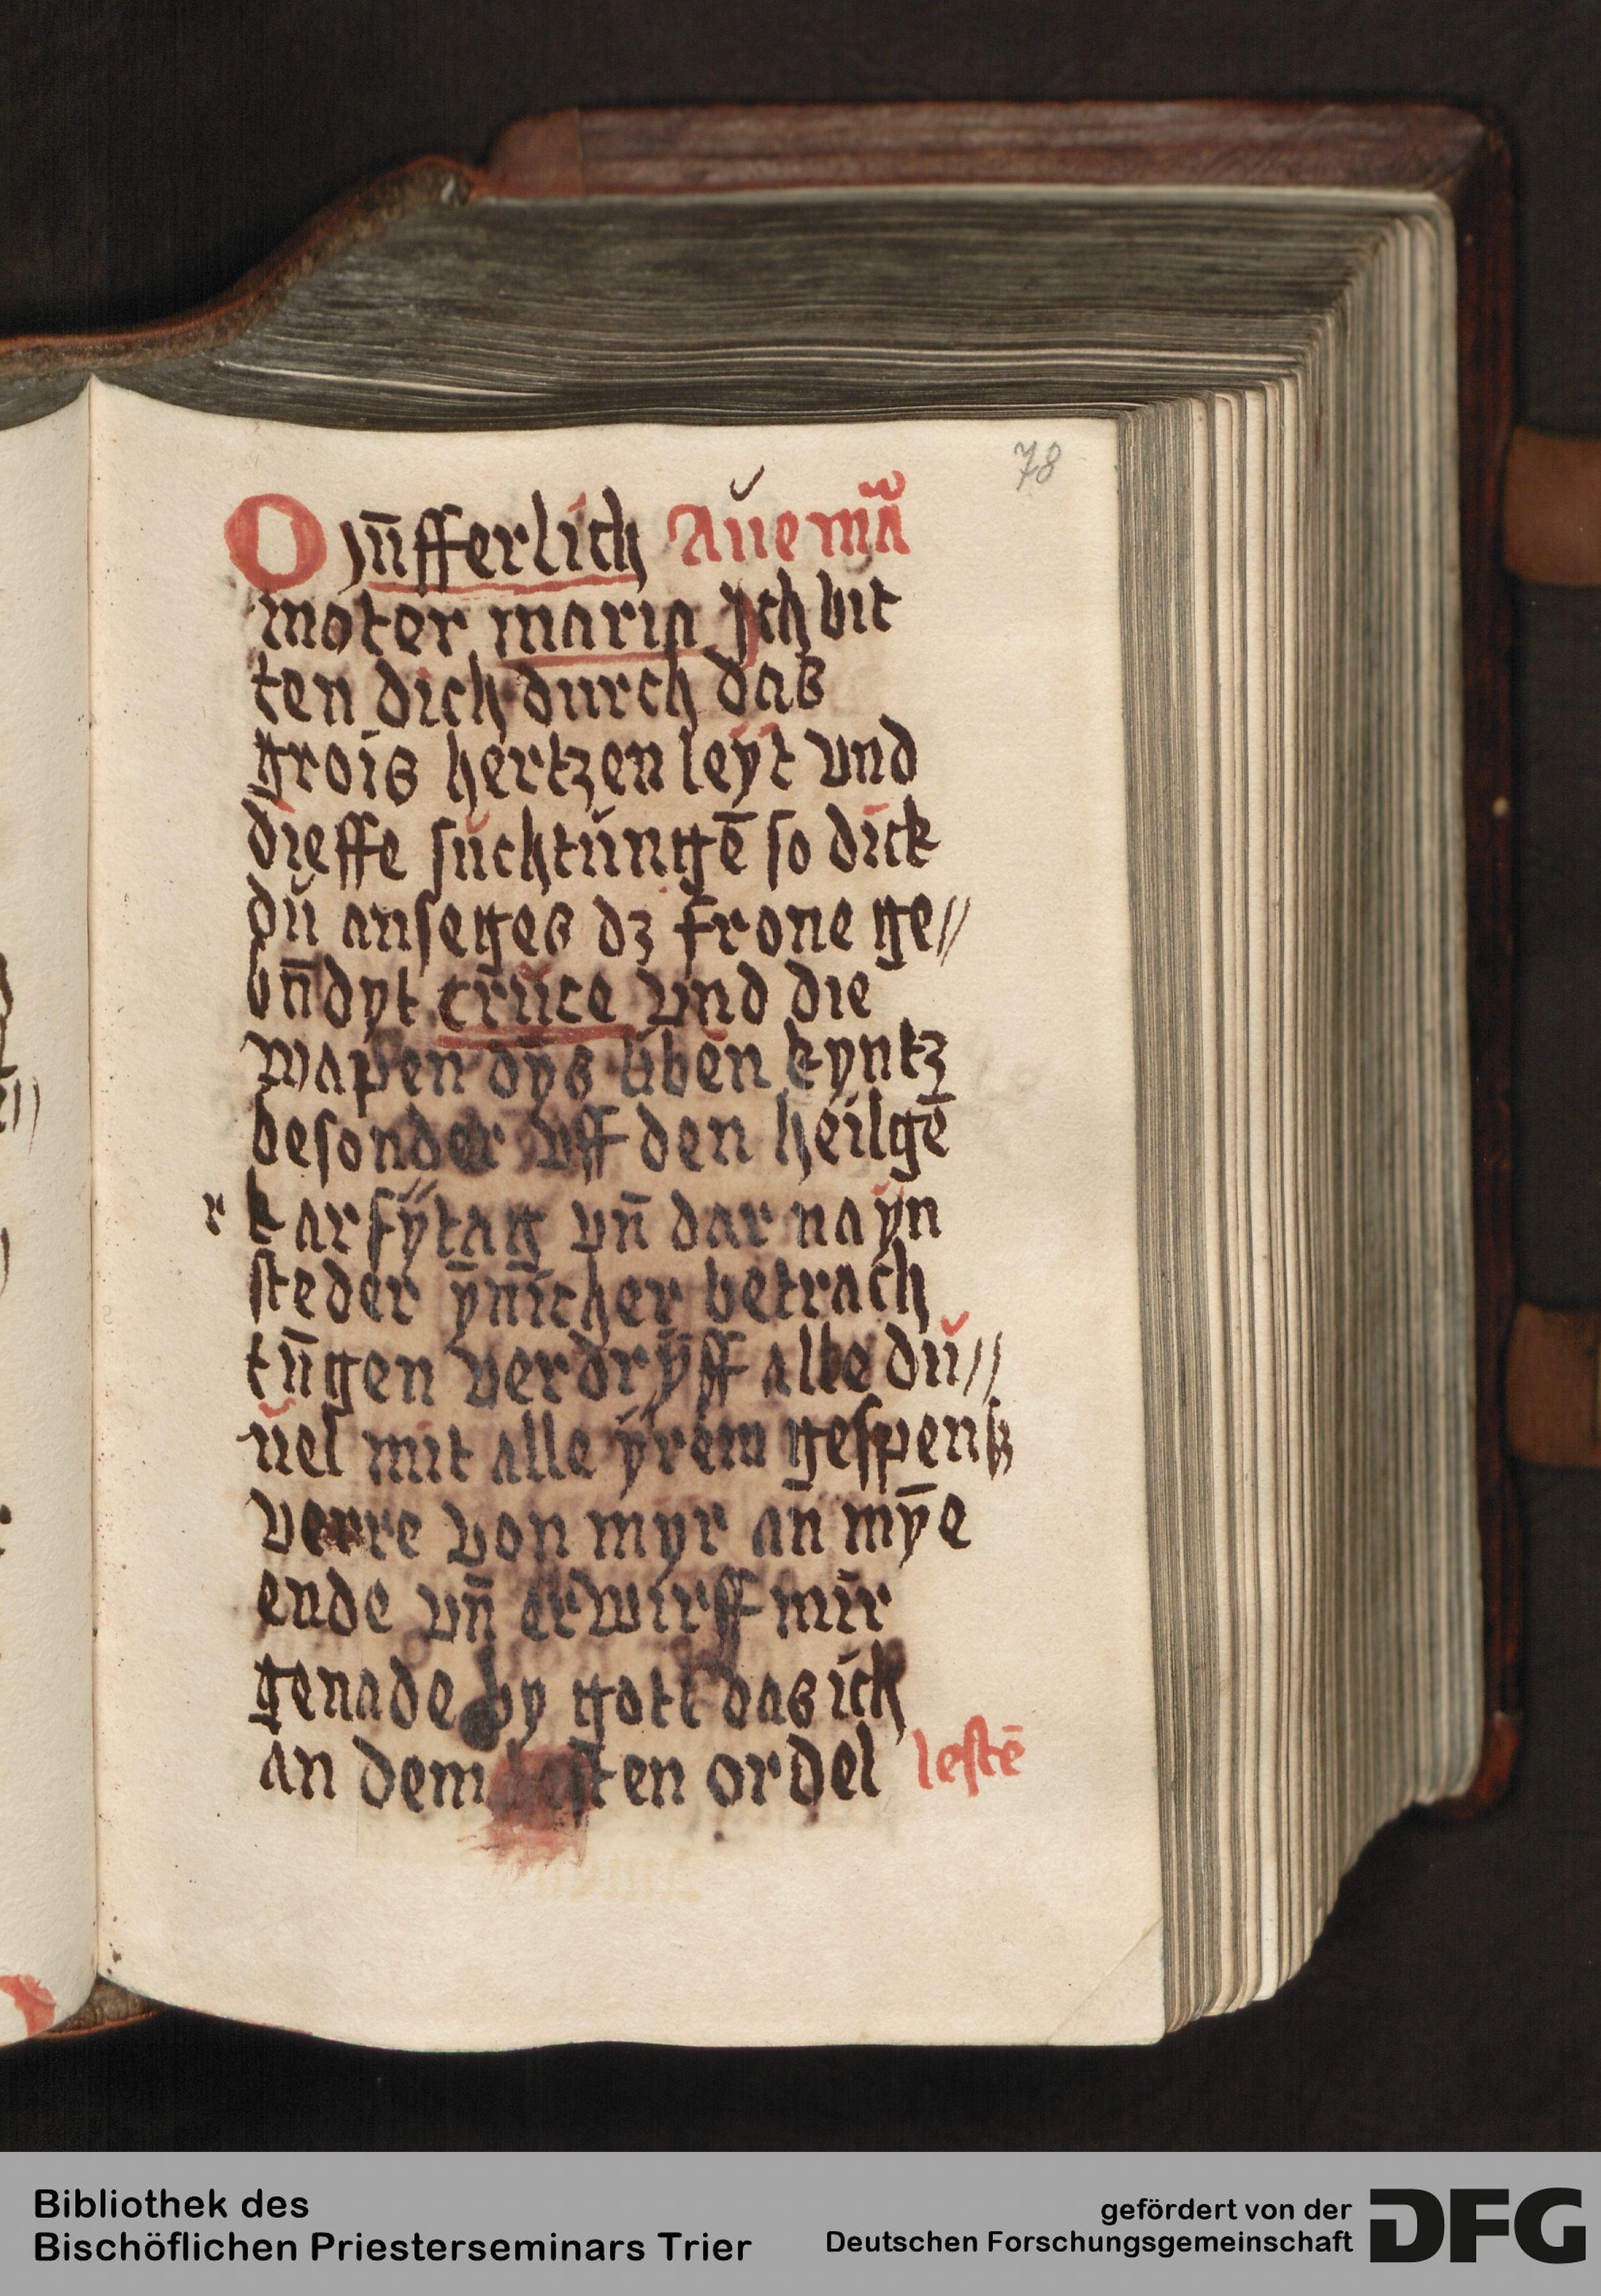 78
O jūfferlich Aue mā
moter maria Jch bit
ten dich durch das
grois hertzen leyt vnd
dieffe suchtungē so dick
dŭ anseges dz frone ge//
bn̄dyt cruce vnd die
wapen dys liben kyntz
besonder vff den heilgē
r karfytag vn̄ dar nayn
steder ȳn̄icher betrach
tūgen verdryff alle dŭ//
uel mit alle yrem gespenß
verre von myr an mȳe
ende vn̄ erwirff mir
genade by gott das ich
an dem lesten ordel lestē
Bibliothek des
Bischöflichen Priesterseminars Trier
gefördert von der
Deutschen Forschungsgemeinschaft
DFG